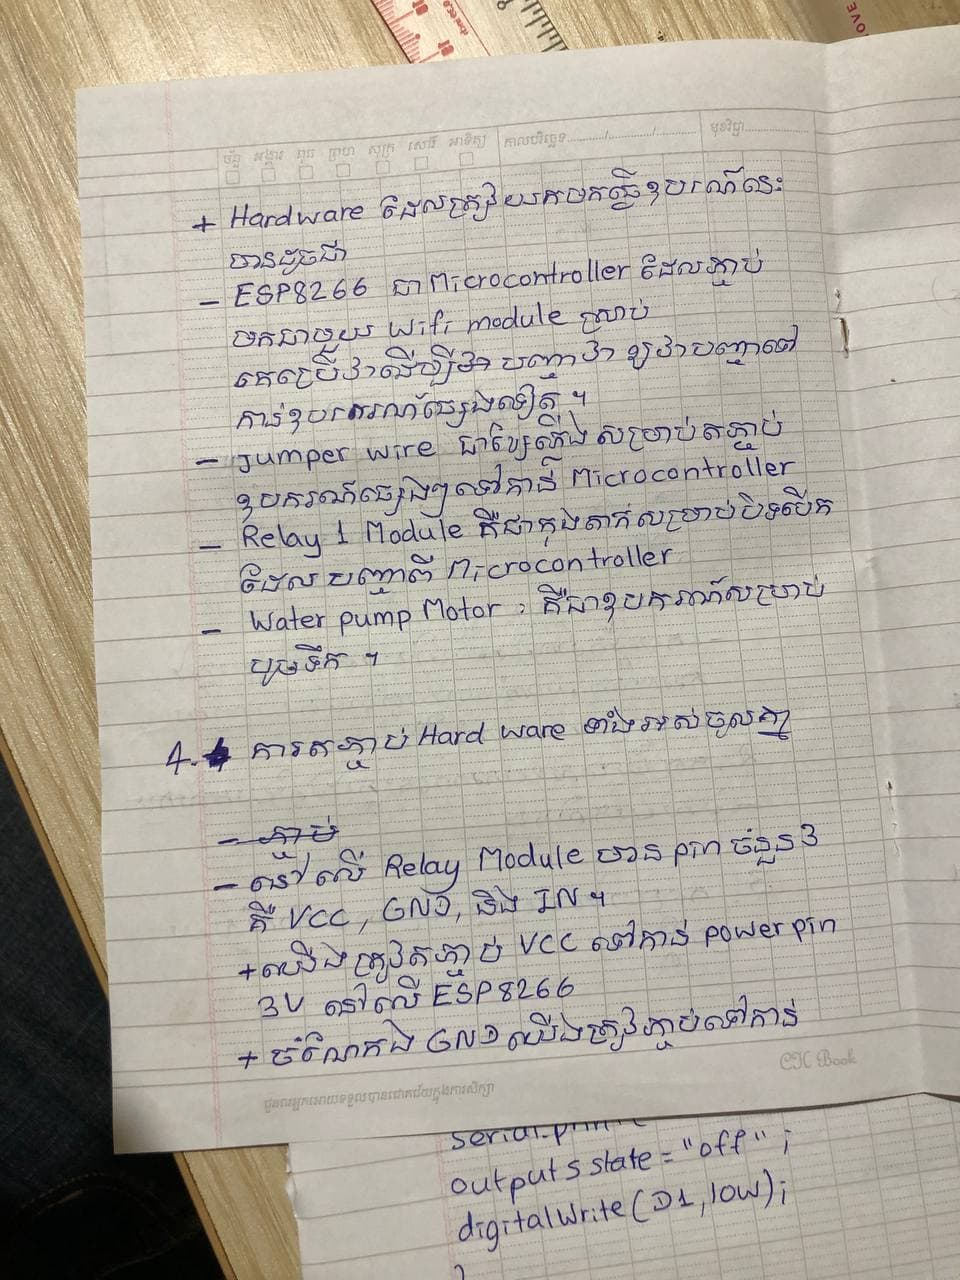 ច័ន្ទ អង្គារ ពុធ ព្រហ សុក្រ សៅរ៍ អាទិត្យ កាលបរិច្ឆេទ............/............../............ មុខវិជ្ជា................
+ Hardware ដែលត្រូវយកមកធ្វើឧបករណ៍នេះ
មានដូចជា
- ESP8266 ជា Microcontroller ដែលភ្ជាប់
មកជាមួយ Wifi module សម្រាប់
គេប្រើវាដើម្បី បញ្ជាវា ឲ្យវាបញ្ជាទៅ
កាន់ឧបករណ៍ផ្សេងទៀត ។
- Jumper wire ជាខ្សែភ្លើងសម្រាប់តភ្ជាប់
ឧបករណ៍ផ្សេងៗទៅកាន់ Microcontroller
- Relay 1 Module គឺជាកុងតាក់សម្រាប់បិទបើក
ដែលបញ្ជាពី Microcontroller
- Water pump Motor : គឺជាឧបករណ៍សម្រាប់
បូមទឹក ។
4. ការតភ្ជាប់ Hard ware ទាំងអស់ចូលគ្នា
- ភ្ជាប់
- នៅលើ Relay Module មាន pin ចំនួន 3
គឺ VCC, GND, និង IN ។
+ យើងត្រូវតភ្ជាប់ VCC ទៅកាន់ power pin
3V នៅលើ ESP8266
+ ចំណែកឯ GND យើងត្រូវភ្ជាប់ទៅកាន់
CK Book
ជូនពរអ្នកអោយទទួលបានជោគជ័យក្នុងការសិក្សា
serial.print
output5state = "off" ;
digitalWrite(D1, low);
}